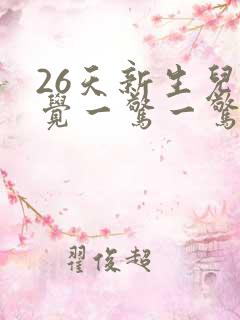 26天新生兒
覺一驚一驚
翟俊超